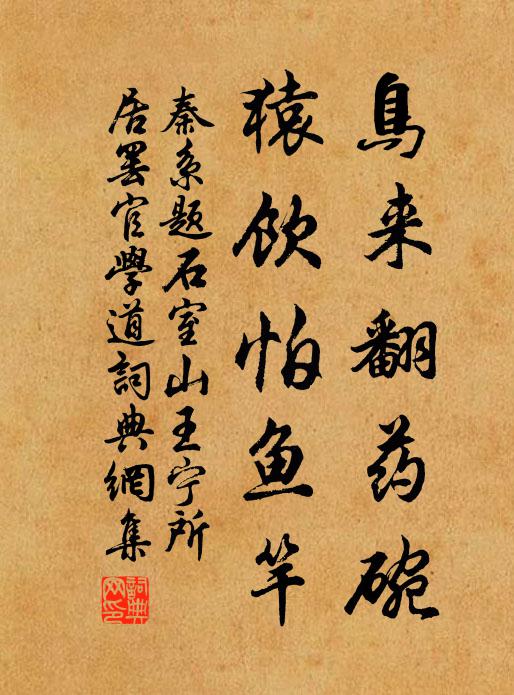 鳥来翻药碗
猿饮怕鱼竿
秦系题石室山王宁所
居罢官學道詞典網集
詞典
网印